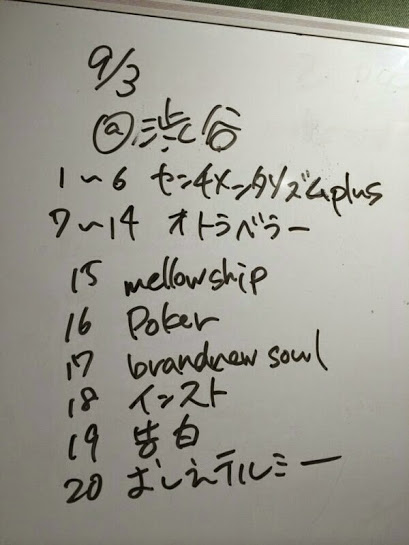 9/3
@渋谷
1~6 センチメンタリズムplus
7~14 オトラベラー
15 mellowship
16 Poker
17 brandnew soul
18 インスト
19 告白
20 おしえテルミー